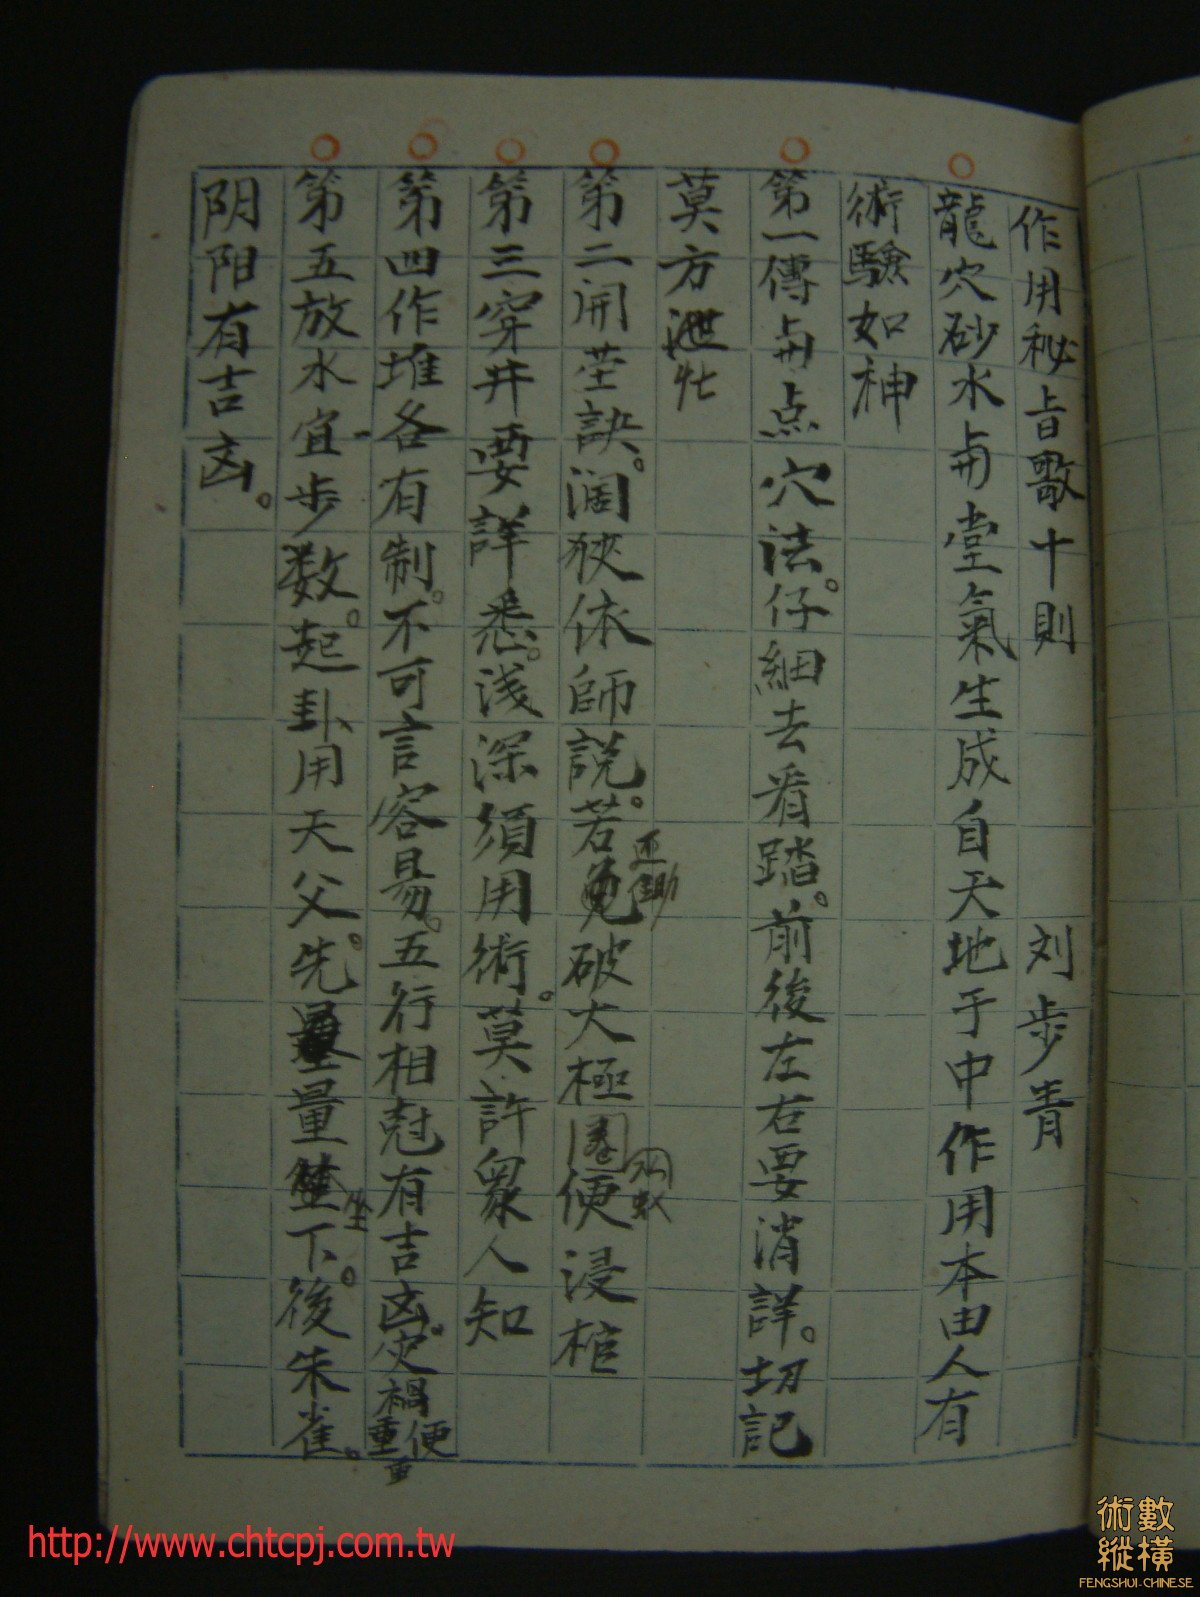 作用秘旨歌十則 刘步青
龍穴砂水与堂氣生成自天地于中作用本由人有
術驗如神
第一傳与点穴法。仔細去看踏。前後左右要消詳。切記
莫方泄
第二開茔訣。濶狹依師説。若免破太極圈便浸棺
第三穿井要詳悉。浅深須用術。莫許眾人知
第四作堆各有制。不可言容易。五行相尅有吉凶。灾禍便重重
第五放水宜步数。起卦用天父。先量量下。後朱雀。
坐
阴阳有吉凶。
http://www.chtcpj.com.tw
術數
縱橫
FENGSHUI-CHINESE